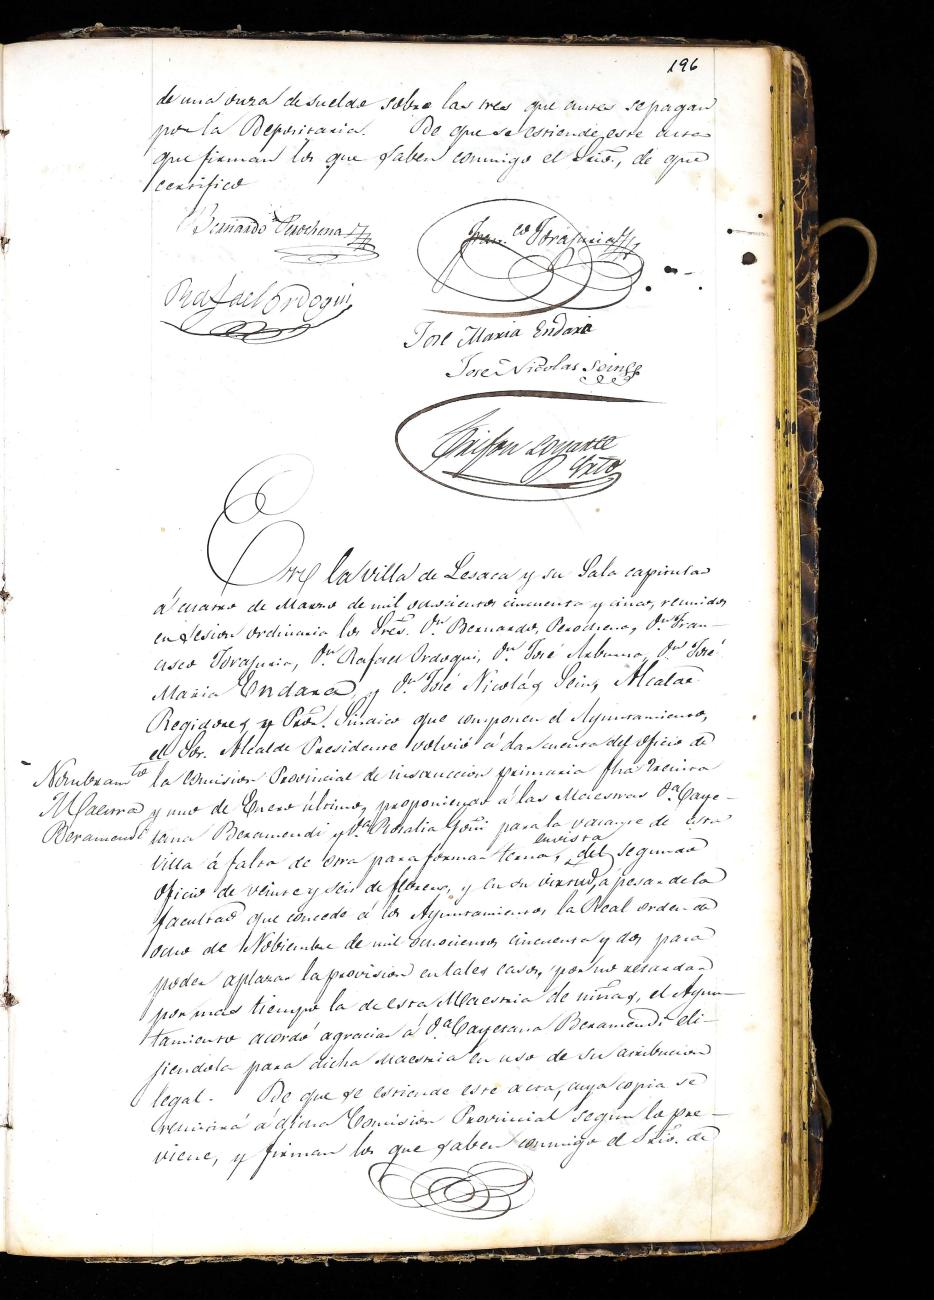 196
de una onza de sueldo sobre las tres que antes se pagan
por la Depositaria. De que se estiende este auto
que firman los que saben conmigo el Srio, de que
certifico
Bernardo Perochena
Fran.co Torajuria
Rafael Ordoqui
José Maria Endara
José Nicolas Soing
Srio
En la villa de Lesaca y su Sala capitular
á cuatro de Marzo de mil ochocientos cincuenta y cinco, reunidos
en sesion ordinaria los Sres. Dn. Bernardo Perochena, Dn. Fran-
cisco Torajuria, Dn. Rafael Ordoqui, Dn. José Dn. José
Maria Endara, y Dn. José Nicolás Soing Alcalde
Regidores y Pror. Sindico que componen el Ayuntamiento,
el Sor. Alcalde Presidente volvió á dar cuenta del oficio de
Nombramto
Maestra
Beramendi
la Comision Provincial de instruccion primaria fha treinta
y uno de Enero último, proponiendo á las Maestras Da. Caye-
tana Beramendi y Da. Rosalia Goñi para la vacante de esta
villa á falta de otra para formar terna, en vista del segundo
oficio de veinte y seis de febrero, y en su virtud, a pesar de la
facultad que concede á los Ayuntamientos la Real orden de
ocho de Nobiembre de mil ochocientos cincuenta y dos para
poder aplazar la provision en tales casos, por no retardar
por mas tiempo la de esta Maestria de niñas, el Ayun-
tamiento acordó agraciar á Da. Cayetana Beramendi eli-
jiendola para dicha Maestria en uso de su atribucion
legal. De que se estiende este acta, cuya copia se
remitirá á dicha Comision Provincial segun lo pre-
viene, y firman los que saben conmigo el Srio. de